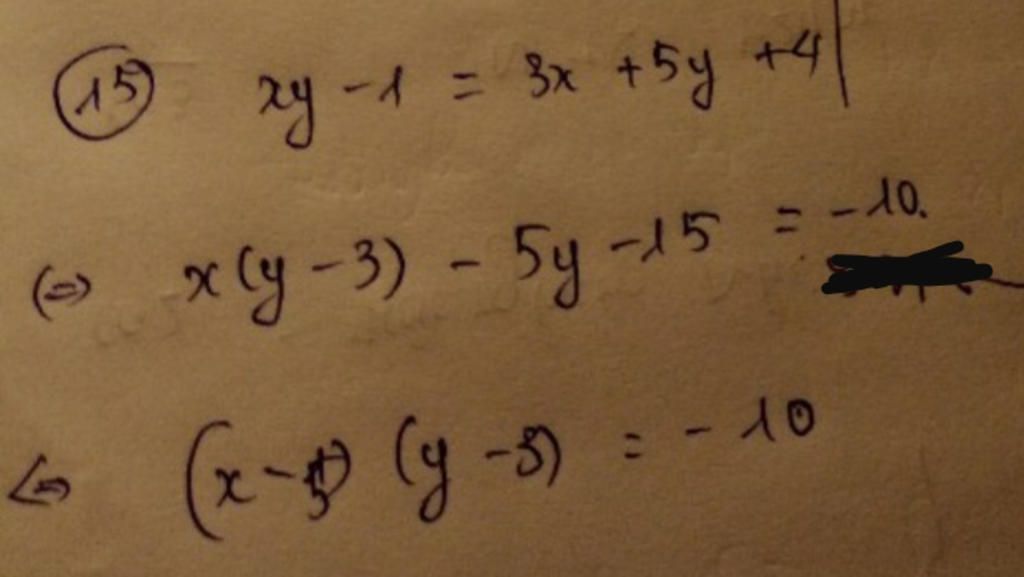 15 xy - 1 = 3x + 5y + 4
(=) x(y - 3) - 5y - 15 = -10.
<=> (x - 5) (y - 3) = - 10